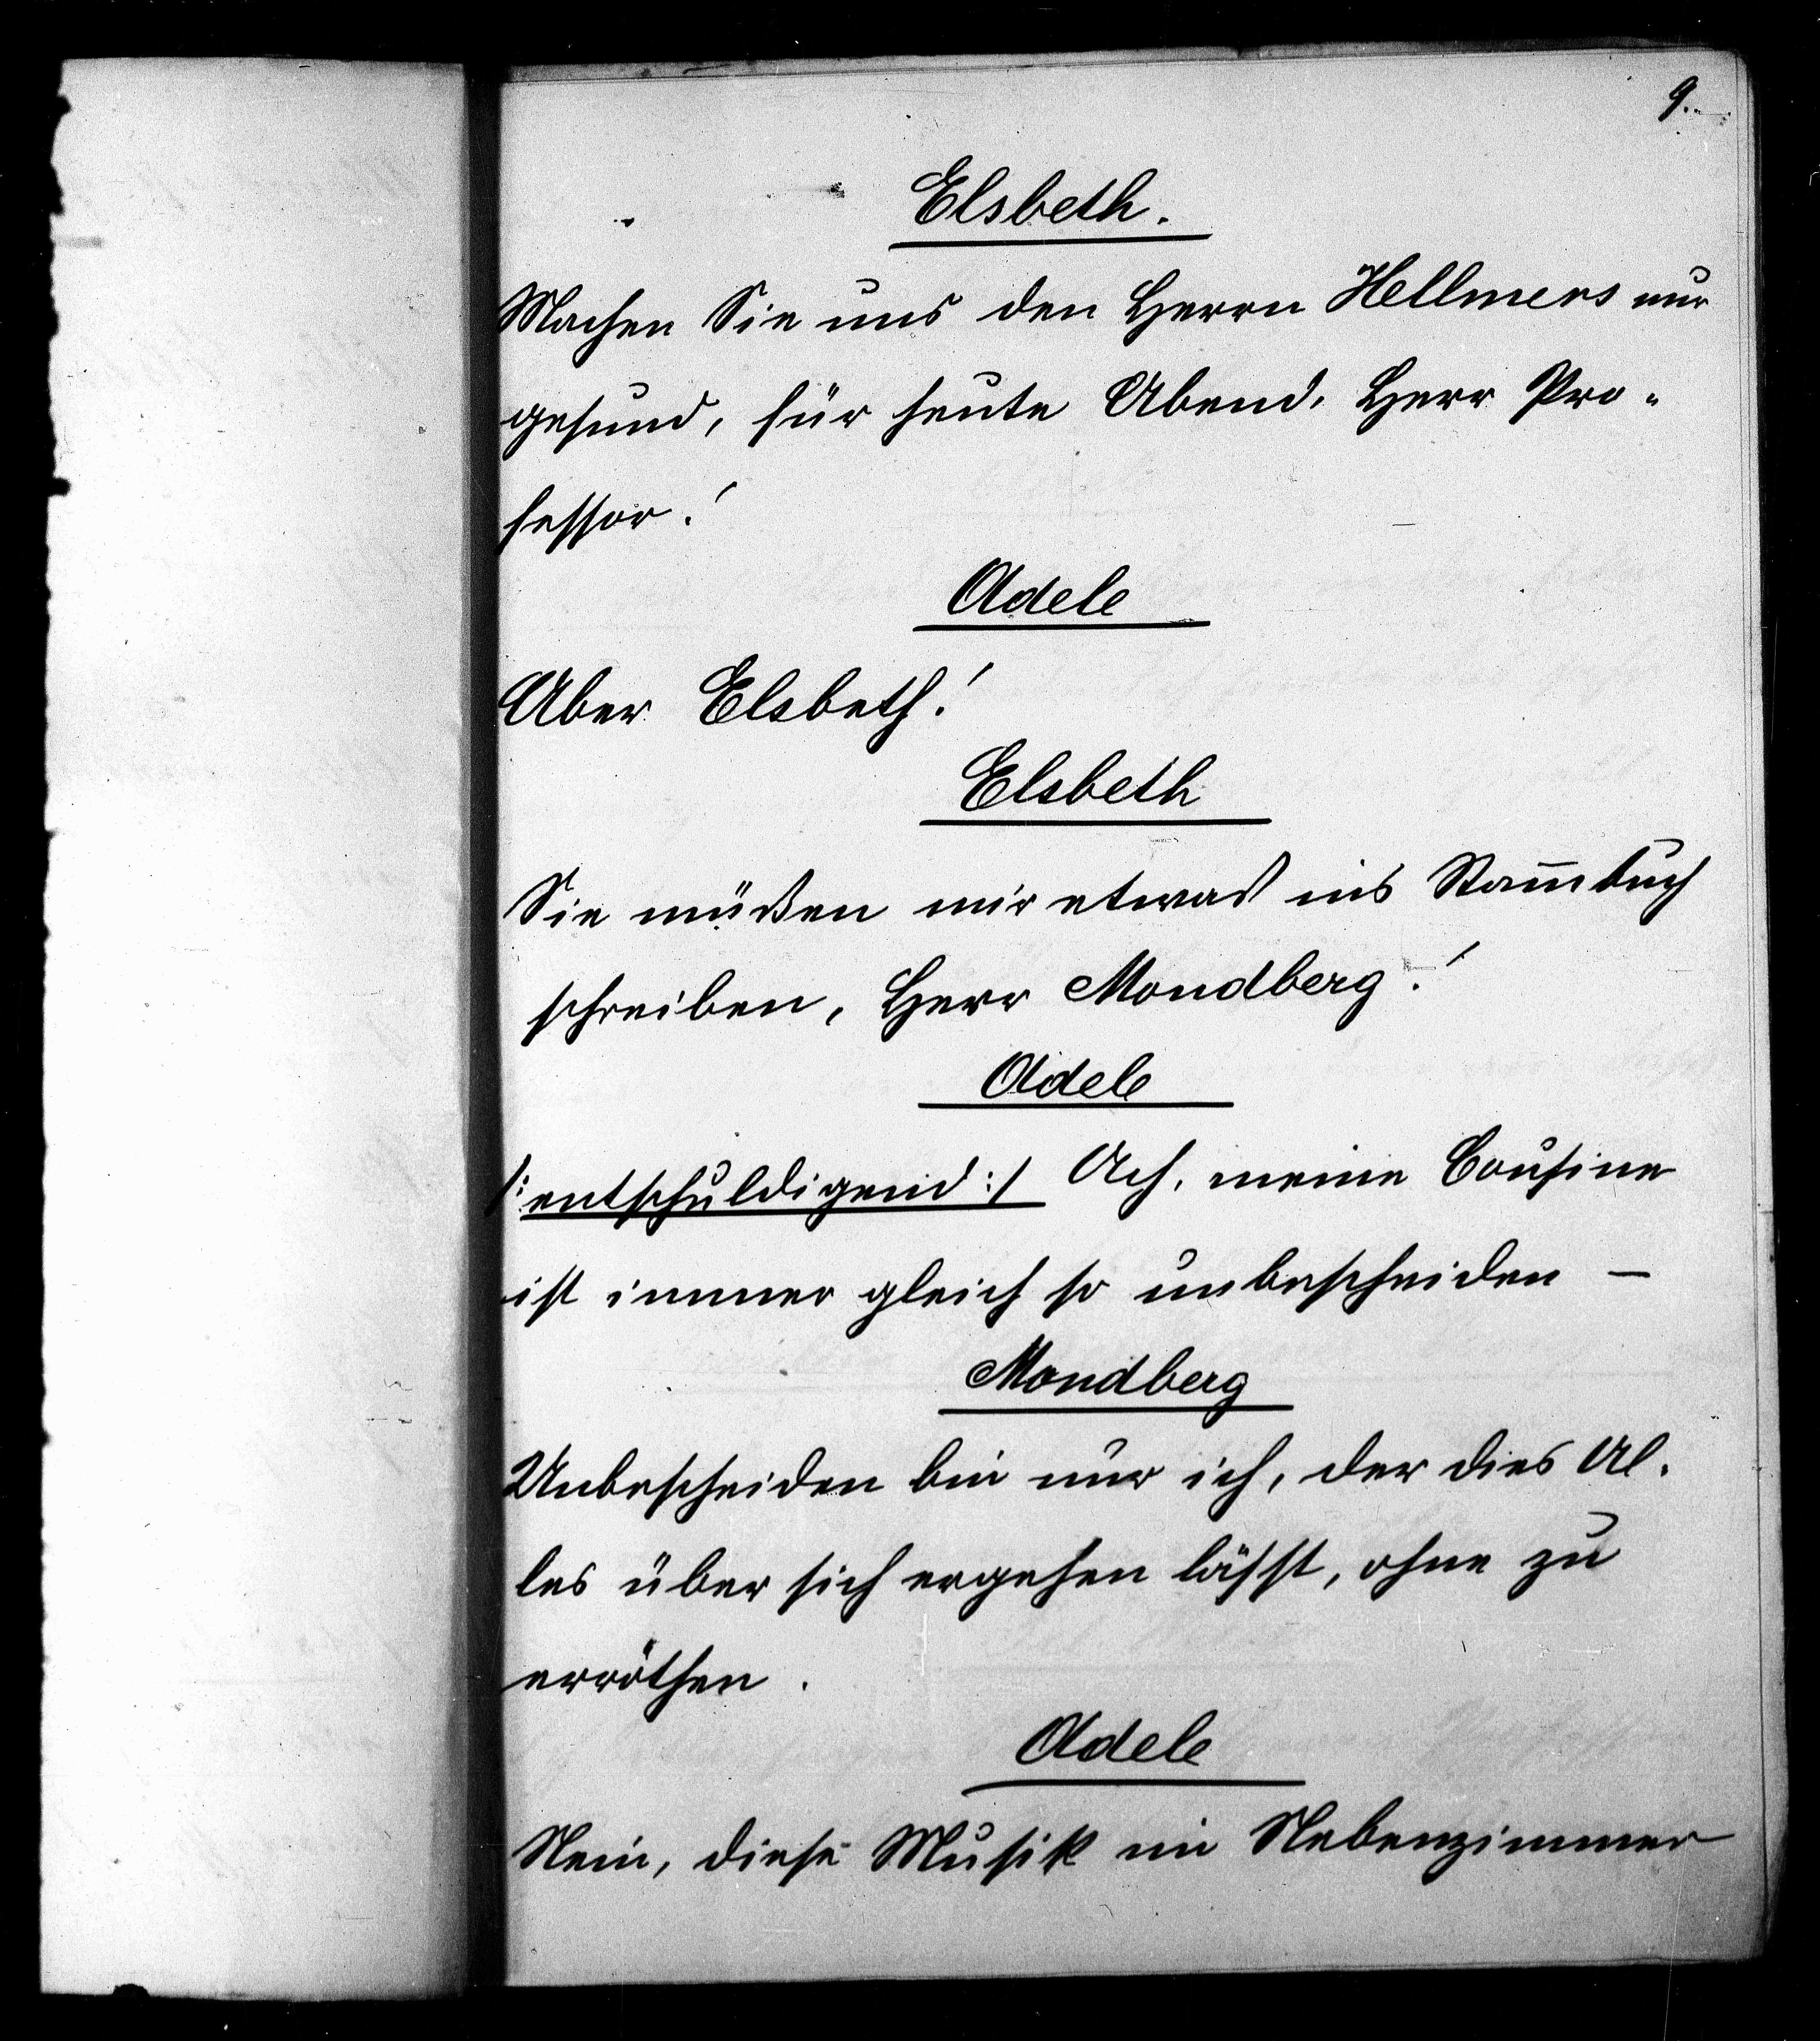 9.
Elsbeth.
Machen Sie uns den Herrn Hellmers nur
gesund, für heute Abend, Herr Pro-
fessor!
Adele
Aber Elsbeth!
Elsbeth
Sie müßen mir etwas ins Stam̅buch
schreiben, Herr Mondberg!
Adele
/: entschuldigend :/ Ach, meine Cousine
ist immer gleich so unbescheiden —
Mondberg
Unbescheiden bin nur ich, der dies Al-
les über sich ergehen lässt, ohne zu
erröthen.
Adele
Nein, diese Musik im Nebenzimmer